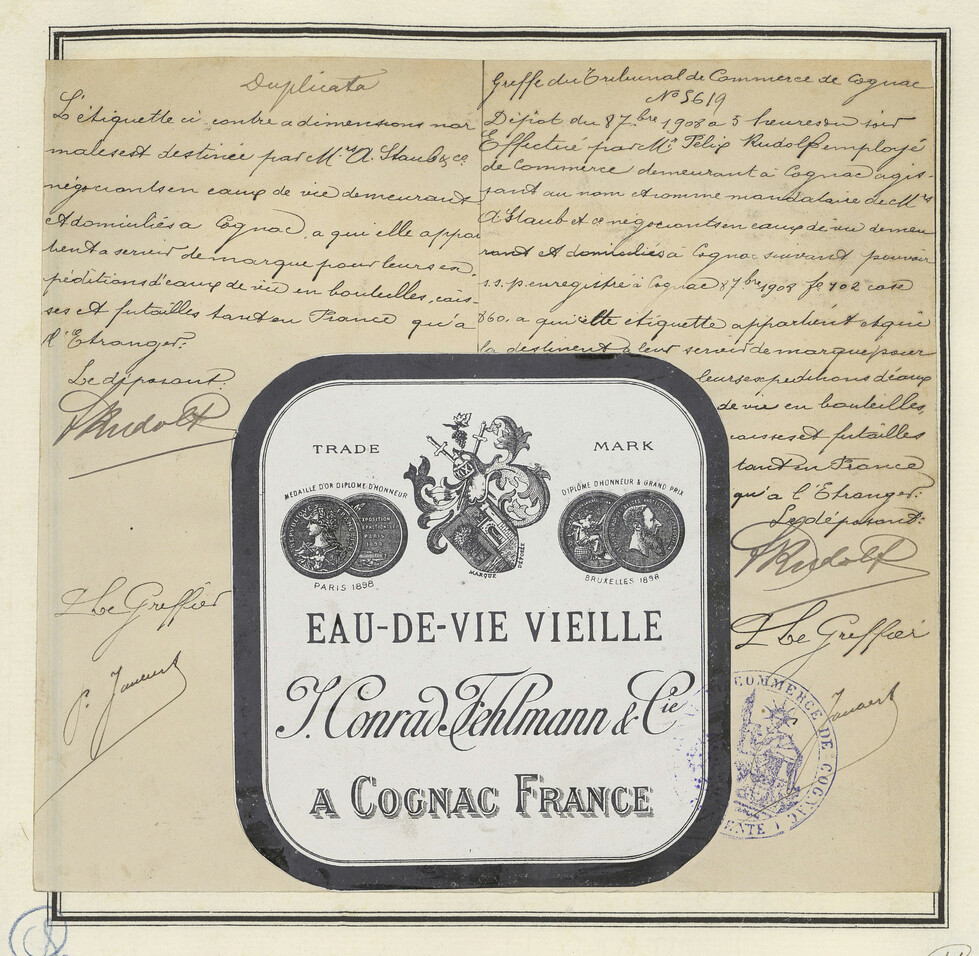 Duplicata
L'étiquette ci contre a dimensions nor
males est destinée par Mrs A. Staub & co.
négociants en eaux de vie demeurant
et domiciliés à Cognac, a qui elle appar
tient a servir de marque pour leurs ex
péditions d'eaux de vie en bouteilles, cais-
ses et futailles tant en France qu'à
l'Etranger:
Le déposant:
F Rudolf
Le Greffier
Greffe du Tribunal de Commerce de Cognac
No 5619
Dépôt du 8 7bre 1908 a 5 heures du soir
Effectué par Mr Félix Rudolf employé
de Commerce demeurant à Cognac agis-
sant au nom et comme mandataire de Mrs
A. Staub et Ce négociants en eaux de vie demeu
rant et domiciliés à Cognac suivant pouvoir
s.s.p. enregistré à Cognac 8 7bre 1908 fo 102 case
860. a qui cette étiquette appartient et qui
la destinent à leur servir de marque pour
leurs expeditions d'eaux
de vie en bouteilles,
caisses et futailles
tant en France
qu'a l'Etranger:
Le déposant:
F Rudolf
Le Greffier
TRADE MARK
MÉDAILLE D'OR DIPLOME D'HONNEUR
DIPLÔME D'HONNEUR & GRAND PRIX
EXPOSITION
PARIS
MARQUE DÉPOSÉE
PARIS 1898
BRUXELLES 1898
EAU-DE-VIE VIEILLE
J. Conrad Fehlmann & Cie
A COGNAC FRANCE
COMMERCE DE COGNAC
ENTE